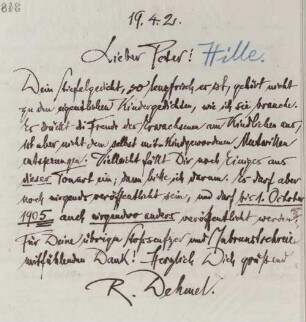 19. 4. 2.
Lieber Peter! Hille.
Dein Stiefelgedicht, so knospfrisch es ist, gehört nicht
zu den eigentlichen Kindergedichten, wie ich sie brauche.
Es drückt die Freude des Erwachsenen am Kindlichen aus,
ist aber nicht dem selbst mit
entsprungen. Vielleicht fällt Dir noch Einiges aus
dieser Tonart ein; dann bitte ich darum. Es darf aber
noch nirgends veröffentlicht sein, und darf bis 1. October
1905 auch nirgendwo anders veröffentlicht werden.
Für Deine übrigen und
mitfühlenden Dank! – Herzlich Dich grüßend
R. Dehmel.